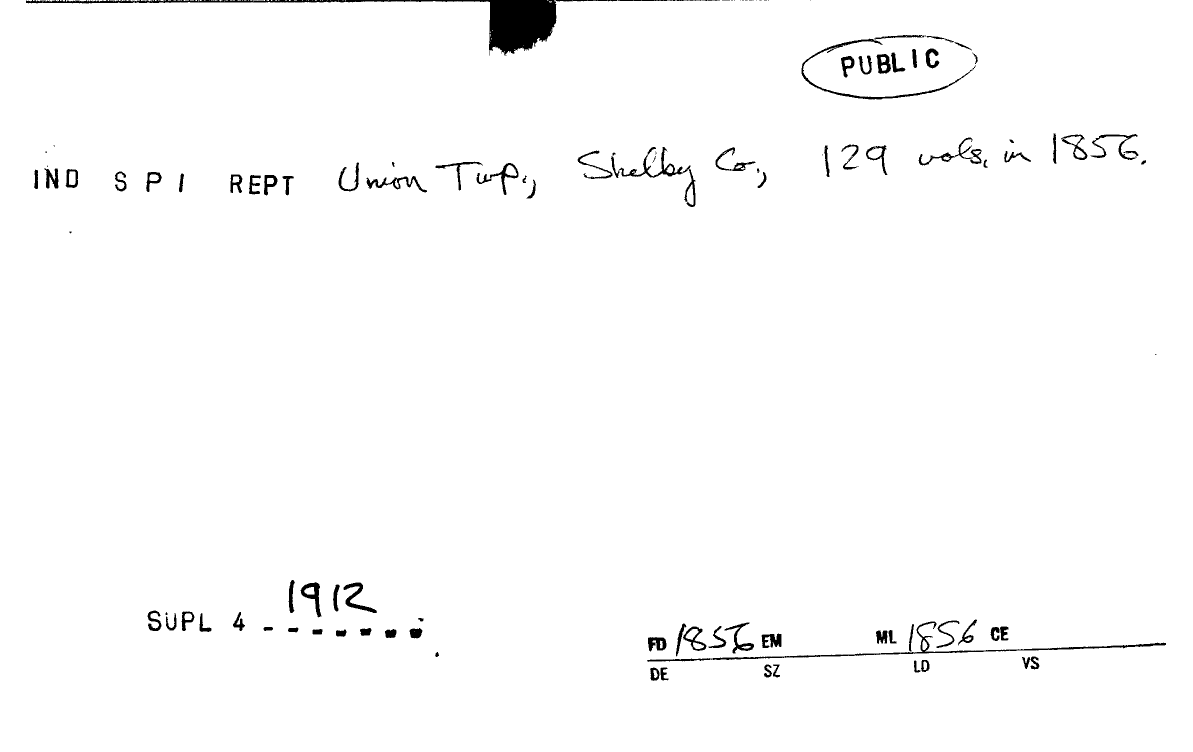 PUBLIC
IND S P I REPT Union Twp., Shelby Co., 129 vols. in 1856.
SUPL 4 1912
FD 1856 EM ML 1856 CE
DE SZ LD VS